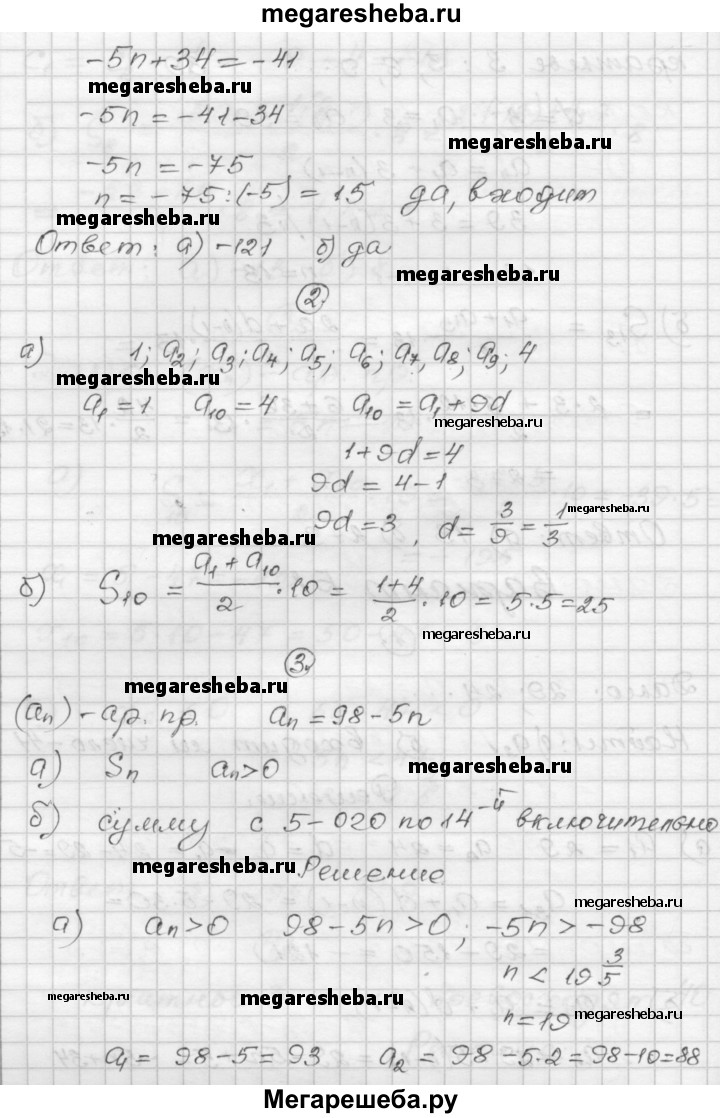 megaresheba.ru
-5n+34=-41
megaresheba.ru
-5n = -41-34
megaresheba.ru
-5n = -75
n = -75:(-5) = 15 да, входит
megaresheba.ru
Ответ: а) -121 б) да
megaresheba.ru
2.
а) 1; a₂; a₃; a₄; a₅; a₆; a₇, a₈; a₉; 4
megaresheba.ru
a₁ = 1 a₁₀ = 4 a₁₀ = a₁ + 9d
megaresheba.ru
1+9d=4
9d = 4-1
9d = 3, d = 3/9 = 1/3
megaresheba.ru
megaresheba.ru
б) S₁₀ = (a₁ + a₁₀)/2 · 10 = (1+4)/2 · 10 = 5·5=25
megaresheba.ru
3.
megaresheba.ru
(aₙ) - ар. пр. aₙ = 98-5n
а) Sₙ aₙ>0
megaresheba.ru
б) сумму с 5-ого по 14 включительно
megaresheba.ru
Решение
megaresheba.ru
а) aₙ>0 98-5n>0; -5n > -98
n < 19 3/5
megaresheba.ru
n = 19
megaresheba.ru
a₁ = 98-5 = 93 a₂ = 98-5·2=98-10=88
Мегарешеба.ру